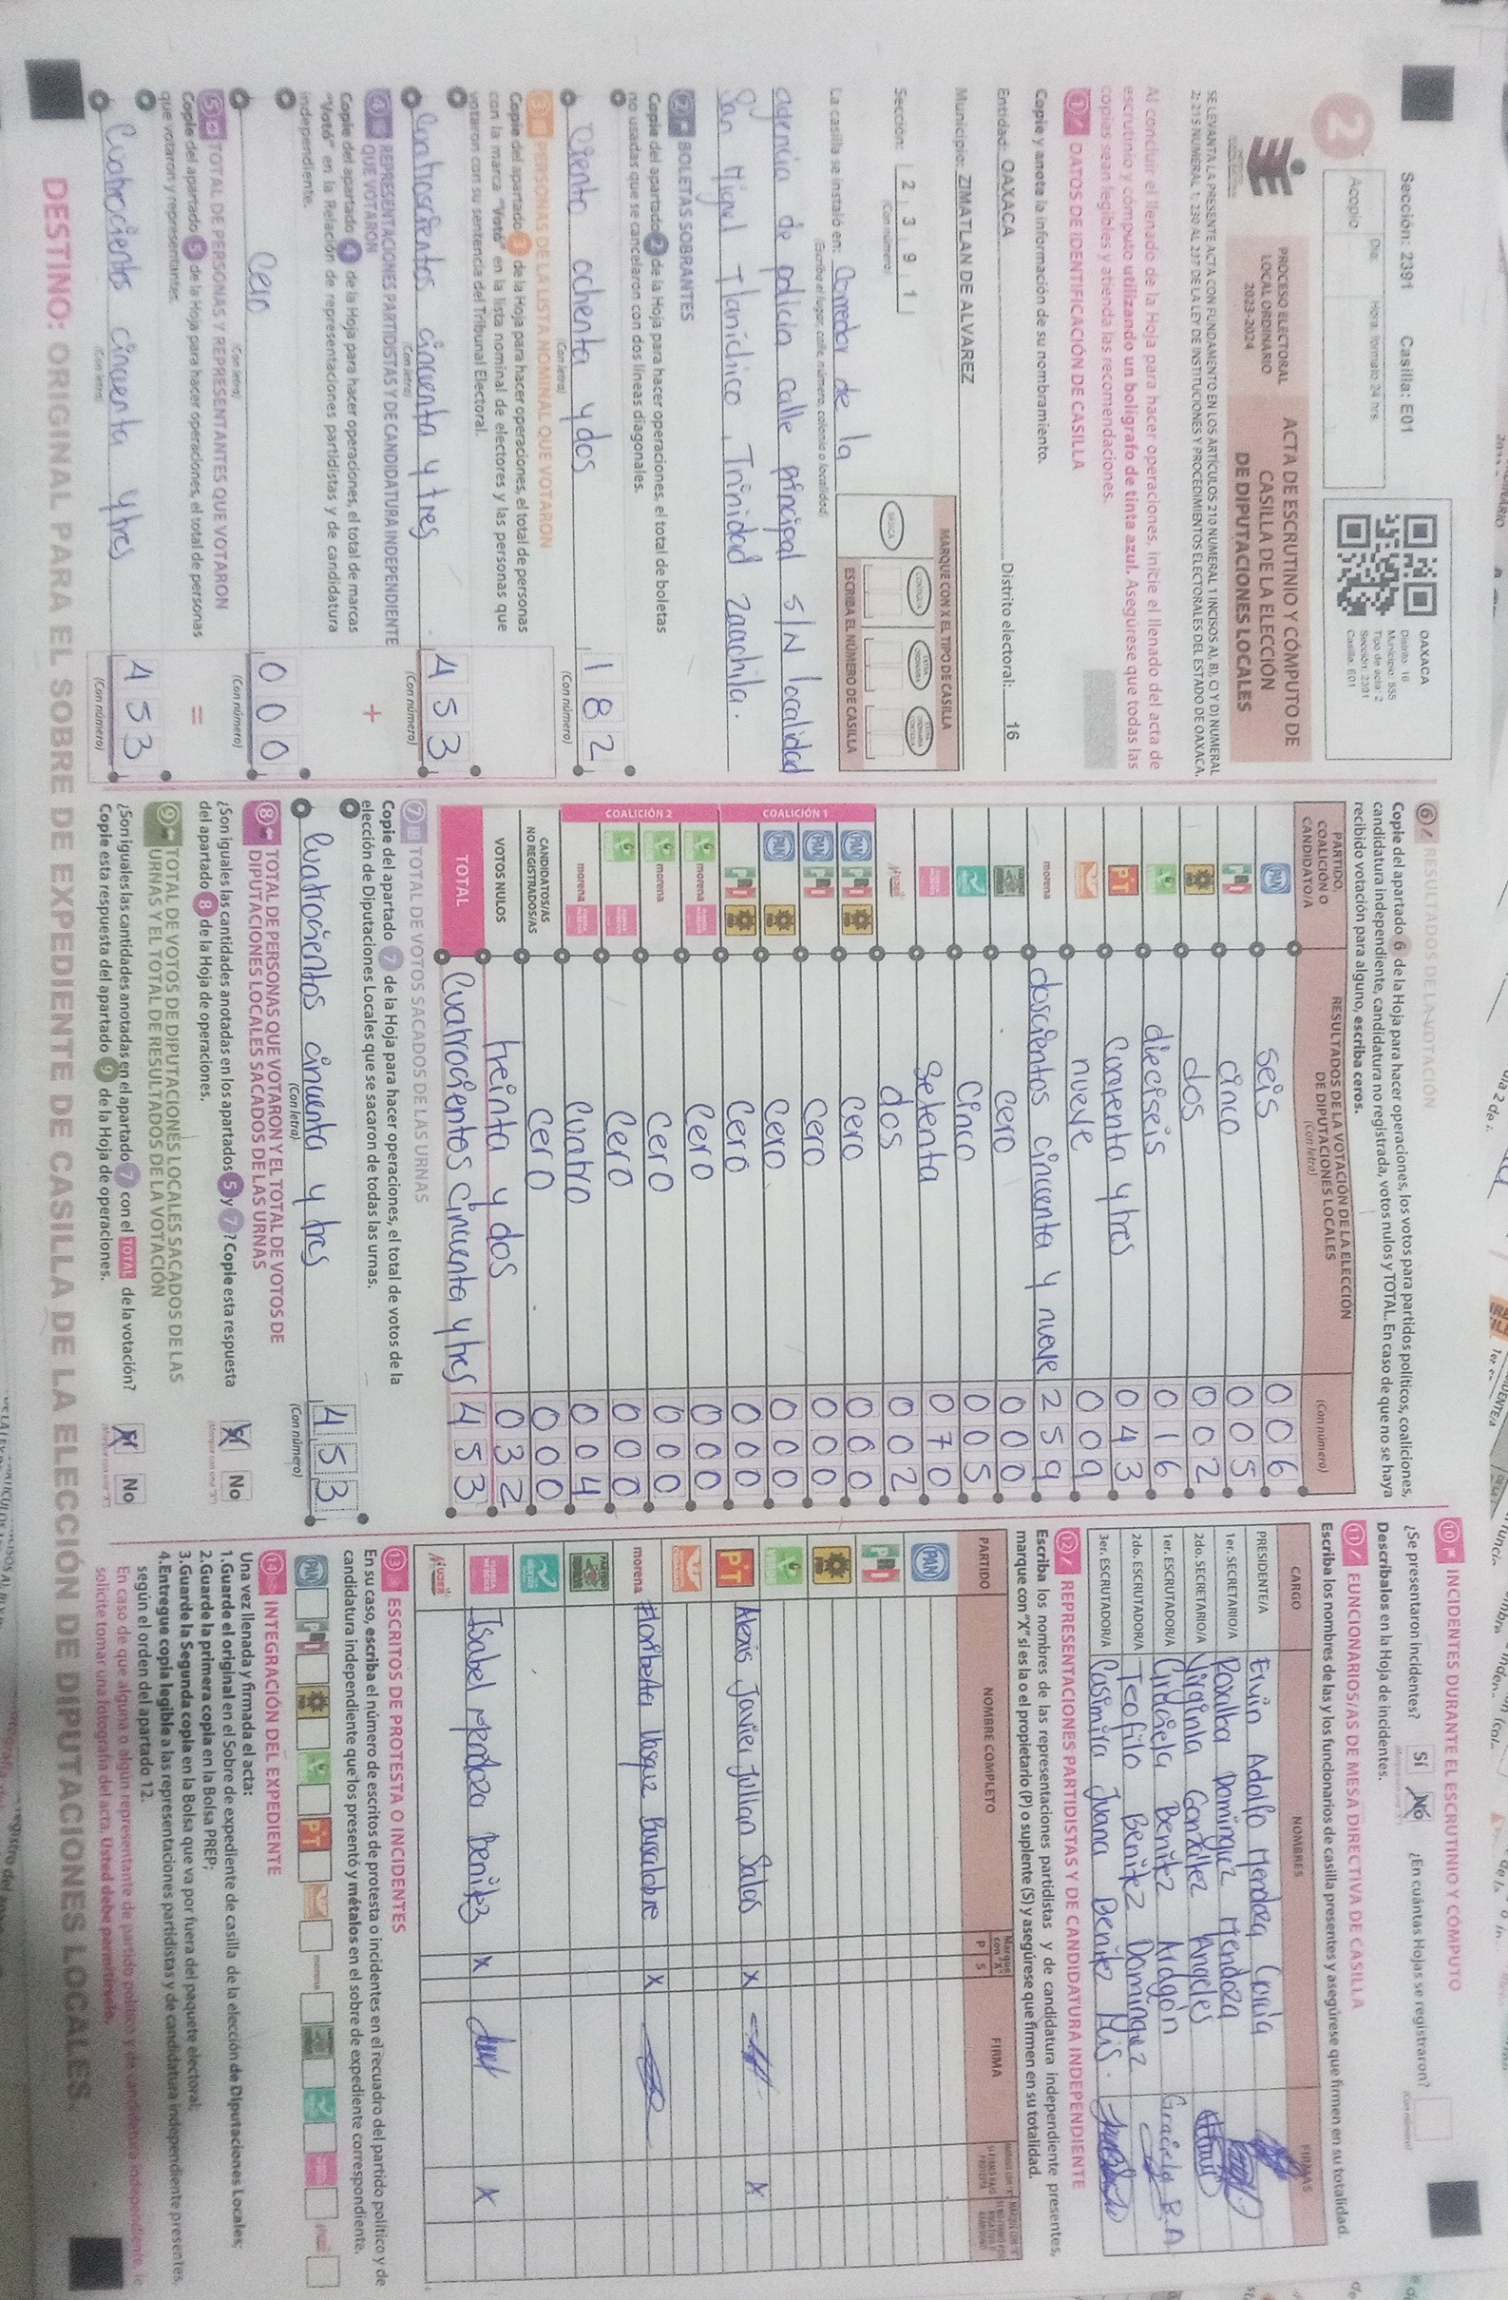 Sección: 2391 Casilla: E01
2
Día: Hora: formato 24 hrs.
Acopio
OAXACA
Distrito: 16
Municipio: 555
Tipo de acta: 2
Sección: 2391
Casilla: E01
PROCESO ELECTORAL
LOCAL ORDINARIO
2023-2024
ACTA DE ESCRUTINIO Y CÓMPUTO DE
CASILLA DE LA ELECCIÓN
DE DIPUTACIONES LOCALES
SE LEVANTA LA PRESENTE ACTA CON FUNDAMENTO EN LOS ARTÍCULOS 210 NUMERAL 1 INCISOS A), B), C) Y D) NUMERAL
2; 215 NUMERAL 1; 230 AL 237 DE LA LEY DE INSTITUCIONES Y PROCEDIMIENTOS ELECTORALES DEL ESTADO DE OAXACA.
Al concluir el llenado de la Hoja para hacer operaciones, inicie el llenado del acta de
escrutinio y cómputo utilizando un bolígrafo de tinta azul. Asegúrese que todas las
copias sean legibles y atienda las recomendaciones.
1 DATOS DE IDENTIFICACIÓN DE CASILLA
Copie y anote la información de su nombramiento.
Entidad: OAXACA Distrito electoral: 16
Municipio: ZIMATLAN DE ALVAREZ
Sección: 2 3 9 1
(Con número)
MARQUE CON X EL TIPO DE CASILLA
BÁSICA CONTIGUA
ESCRIBA EL NÚMERO DE CASILLA
La casilla se instaló en: Corredor de la
(Escriba el lugar, calle, número, colonia o localidad)
agencia de policia calle principal S/N localidad
San Miguel Tlanichico, Trinidad Zaachila.
2 BOLETAS SOBRANTES
Copie del apartado 2 de la Hoja para hacer operaciones, el total de boletas
no usadas que se cancelaron con dos líneas diagonales.
Ciento ochenta y dos 1 8 2
(Con letra) (Con número)
3 PERSONAS DE LA LISTA NOMINAL QUE VOTARON
Copie del apartado 3 de la Hoja para hacer operaciones, el total de personas
con la marca "Votó" en la lista nominal de electores y las personas que
votaron con su sentencia del Tribunal Electoral.
Cuatrocientos cincuenta y tres 4 5 3
(Con letra) (Con número)
4 REPRESENTACIONES PARTIDISTAS Y DE CANDIDATURA INDEPENDIENTE
QUE VOTARON
+
Copie del apartado 4 de la Hoja para hacer operaciones, el total de marcas
"Votó" en la Relación de representaciones partidistas y de candidatura
independiente.
Cero 0 0 0
(Con letra) (Con número)
5 TOTAL DE PERSONAS Y REPRESENTANTES QUE VOTARON
=
Copie del apartado 5 de la Hoja para hacer operaciones, el total de personas
que votaron y representantes.
Cuatrocientos cincuenta y tres 4 5 3
(Con letra) (Con número)
6 RESULTADOS DE LA VOTACIÓN
Copie del apartado 6 de la Hoja para hacer operaciones, los votos para partidos políticos, coaliciones,
candidatura independiente, candidatura no registrada, votos nulos y TOTAL. En caso de que no se haya
recibido votación para alguno, escriba ceros.
PARTIDO, COALICIÓN O CANDIDATO/A
RESULTADOS DE LA VOTACIÓN DE LA ELECCIÓN DE DIPUTACIONES LOCALES
(Con letra) (Con número)
PAN seis 0 0 6
PRI cinco 0 0 5
PRD dos 0 0 2
dieciseis 0 1 6
PT Cuarenta y tres 0 4 3
nueve 0 0 9
morena doscientos cincuenta y nueve 2 5 9
cero 0 0 0
Cinco 0 0 5
Setenta 0 7 0
dos 0 0 2
COALICIÓN 1
PAN PRI PRD cero 0 0 0
PAN PRI Cero 0 0 0
PAN PRD Cero 0 0 0
PRI PRD Cero 0 0 0
COALICIÓN 2
morena Cero 0 0 0
morena Cero 0 0 0
Cero 0 0 0
morena Cuatro 0 0 4
CANDIDATOS/AS NO REGISTRADOS/AS Cero 0 0 0
VOTOS NULOS treinta y dos 0 3 2
TOTAL Cuatrocientos cincuenta y tres 4 5 3
7 TOTAL DE VOTOS SACADOS DE LAS URNAS
Copie del apartado 7 de la Hoja para hacer operaciones, el total de votos de la
elección de Diputaciones Locales que se sacaron de todas las urnas.
Cuatrocientos cincuenta y tres 4 5 3
(Con letra) (Con número)
8 TOTAL DE PERSONAS QUE VOTARON Y EL TOTAL DE VOTOS DE
DIPUTACIONES LOCALES SACADOS DE LAS URNAS
¿Son iguales las cantidades anotadas en los apartados 5 y 7? Copie esta respuesta
del apartado 8 de la Hoja de operaciones.
X No
9 TOTAL DE VOTOS DE DIPUTACIONES LOCALES SACADOS DE LAS
URNAS Y EL TOTAL DE RESULTADOS DE LA VOTACIÓN
¿Son iguales las cantidades anotadas en el apartado 7 con el TOTAL de la votación?
Copie esta respuesta del apartado 9 de la Hoja de operaciones.
X No
10 INCIDENTES DURANTE EL ESCRUTINIO Y CÓMPUTO
¿Se presentaron incidentes? Sí No ¿En cuántas Hojas se registraron?
(Con número)
Descríbalos en la Hoja de incidentes.
11 FUNCIONARIOS/AS DE MESA DIRECTIVA DE CASILLA
Escriba los nombres de las y los funcionarios de casilla presentes y asegúrese que firmen en su totalidad.
CARGO NOMBRES FIRMAS
PRESIDENTE/A Ervin Adolfo Mendoza Coria
1er. SECRETARIO/A Roxalba Dominguez Mendoza
2do. SECRETARIO/A Virginia González Angeles
1er. ESCRUTADOR/A Graciela Benitez Aragón Graciela B.A
2do. ESCRUTADOR/A Teofilo Benitez Dominguez
3er. ESCRUTADOR/A Casimira Juana Benitez Mis.
12 REPRESENTACIONES PARTIDISTAS Y DE CANDIDATURA INDEPENDIENTE
Escriba los nombres de las representaciones partidistas y de candidatura independiente presentes,
marque con "X" si es la o el propietario (P) o suplente (S) y asegúrese que firmen en su totalidad.
PARTIDO NOMBRE COMPLETO Marque con "X" P S FIRMA
PAN
PRI
PRD
PT Alexis Javier Julian Salas X X
morena Floriberta Vasquez X
Isabel Mendoza Benitez X X
13 ESCRITOS DE PROTESTA O INCIDENTES
En su caso, escriba el número de escritos de protesta o incidentes en el recuadro del partido político y de
candidatura independiente que los presentó y métalos en el sobre de expediente correspondiente.
PAN PRI PRD PT morena
14 INTEGRACIÓN DEL EXPEDIENTE
Una vez llenada y firmada el acta:
1.Guarde el original en el Sobre de expediente de casilla de la elección de Diputaciones Locales;
2.Guarde la primera copia en la Bolsa PREP;
3.Guarde la Segunda copia en la Bolsa que va por fuera del paquete electoral;
4.Entregue copia legible a las representaciones partidistas y de candidatura independiente presentes,
según el orden del apartado 12.
En caso de que alguna o algún representante de partido político y de candidatura independiente, le
solicite tomar una fotografía del acta, Usted debe permitírselo.
DESTINO: ORIGINAL PARA EL SOBRE DE EXPEDIENTE DE CASILLA DE LA ELECCIÓN DE DIPUTACIONES LOCALES.